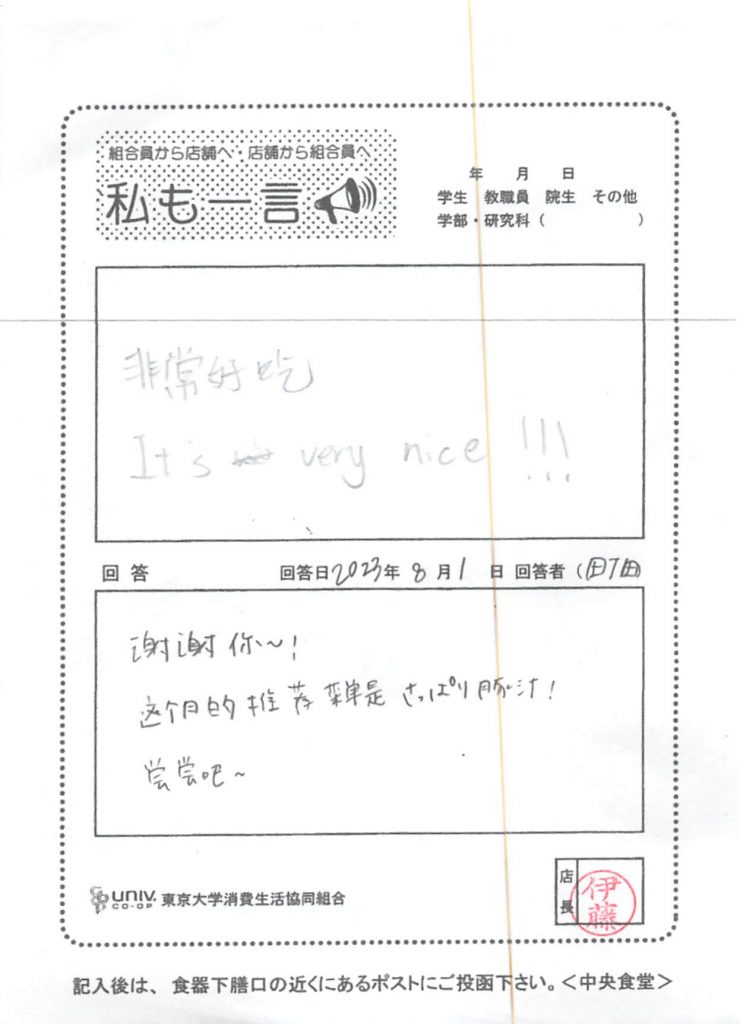 組合員から店舗へ・店舗から組合員へ
私も一言
年 月 日
学生 教職員 院生 その他
学部・研究科（ ）
非常好吃
It's very nice !!!
回答 回答日2023年8月1日 回答者（町田）
谢谢你～！
这个月的推荐菜单是さっぱり豚汁！
尝尝吧～
UNIV. CO-OP 東京大学消費生活協同組合
店長 伊藤
記入後は、食器下膳口の近くにあるポストにご投函下さい。＜中央食堂＞